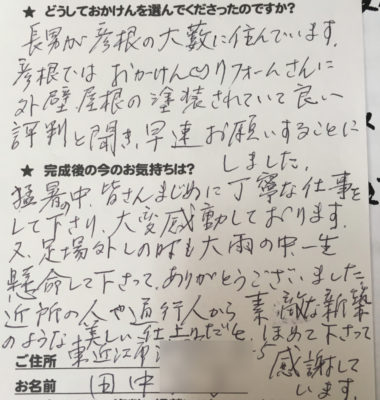 ★ どうしておかけんを選んでくださったのですか?
長男が彦根の大藪に住んでいます。
彦根では おかけんリフォームさんに
外壁屋根の塗装されていて良い
評判と聞き、早速お願いすることに
しました。
★ 完成後の今のお気持ちは?
猛暑の中、皆さんまじめに丁寧な仕事を
して下さり、大変感動しております。
又、足場外しの時も大雨の中一生
懸命して下さって、ありがとうございました。
近所の人や通行人から素敵な新築
のような美しい仕上りだと、ほめて下さって
感謝して
います。
ご住所 東近江市
お名前 田中